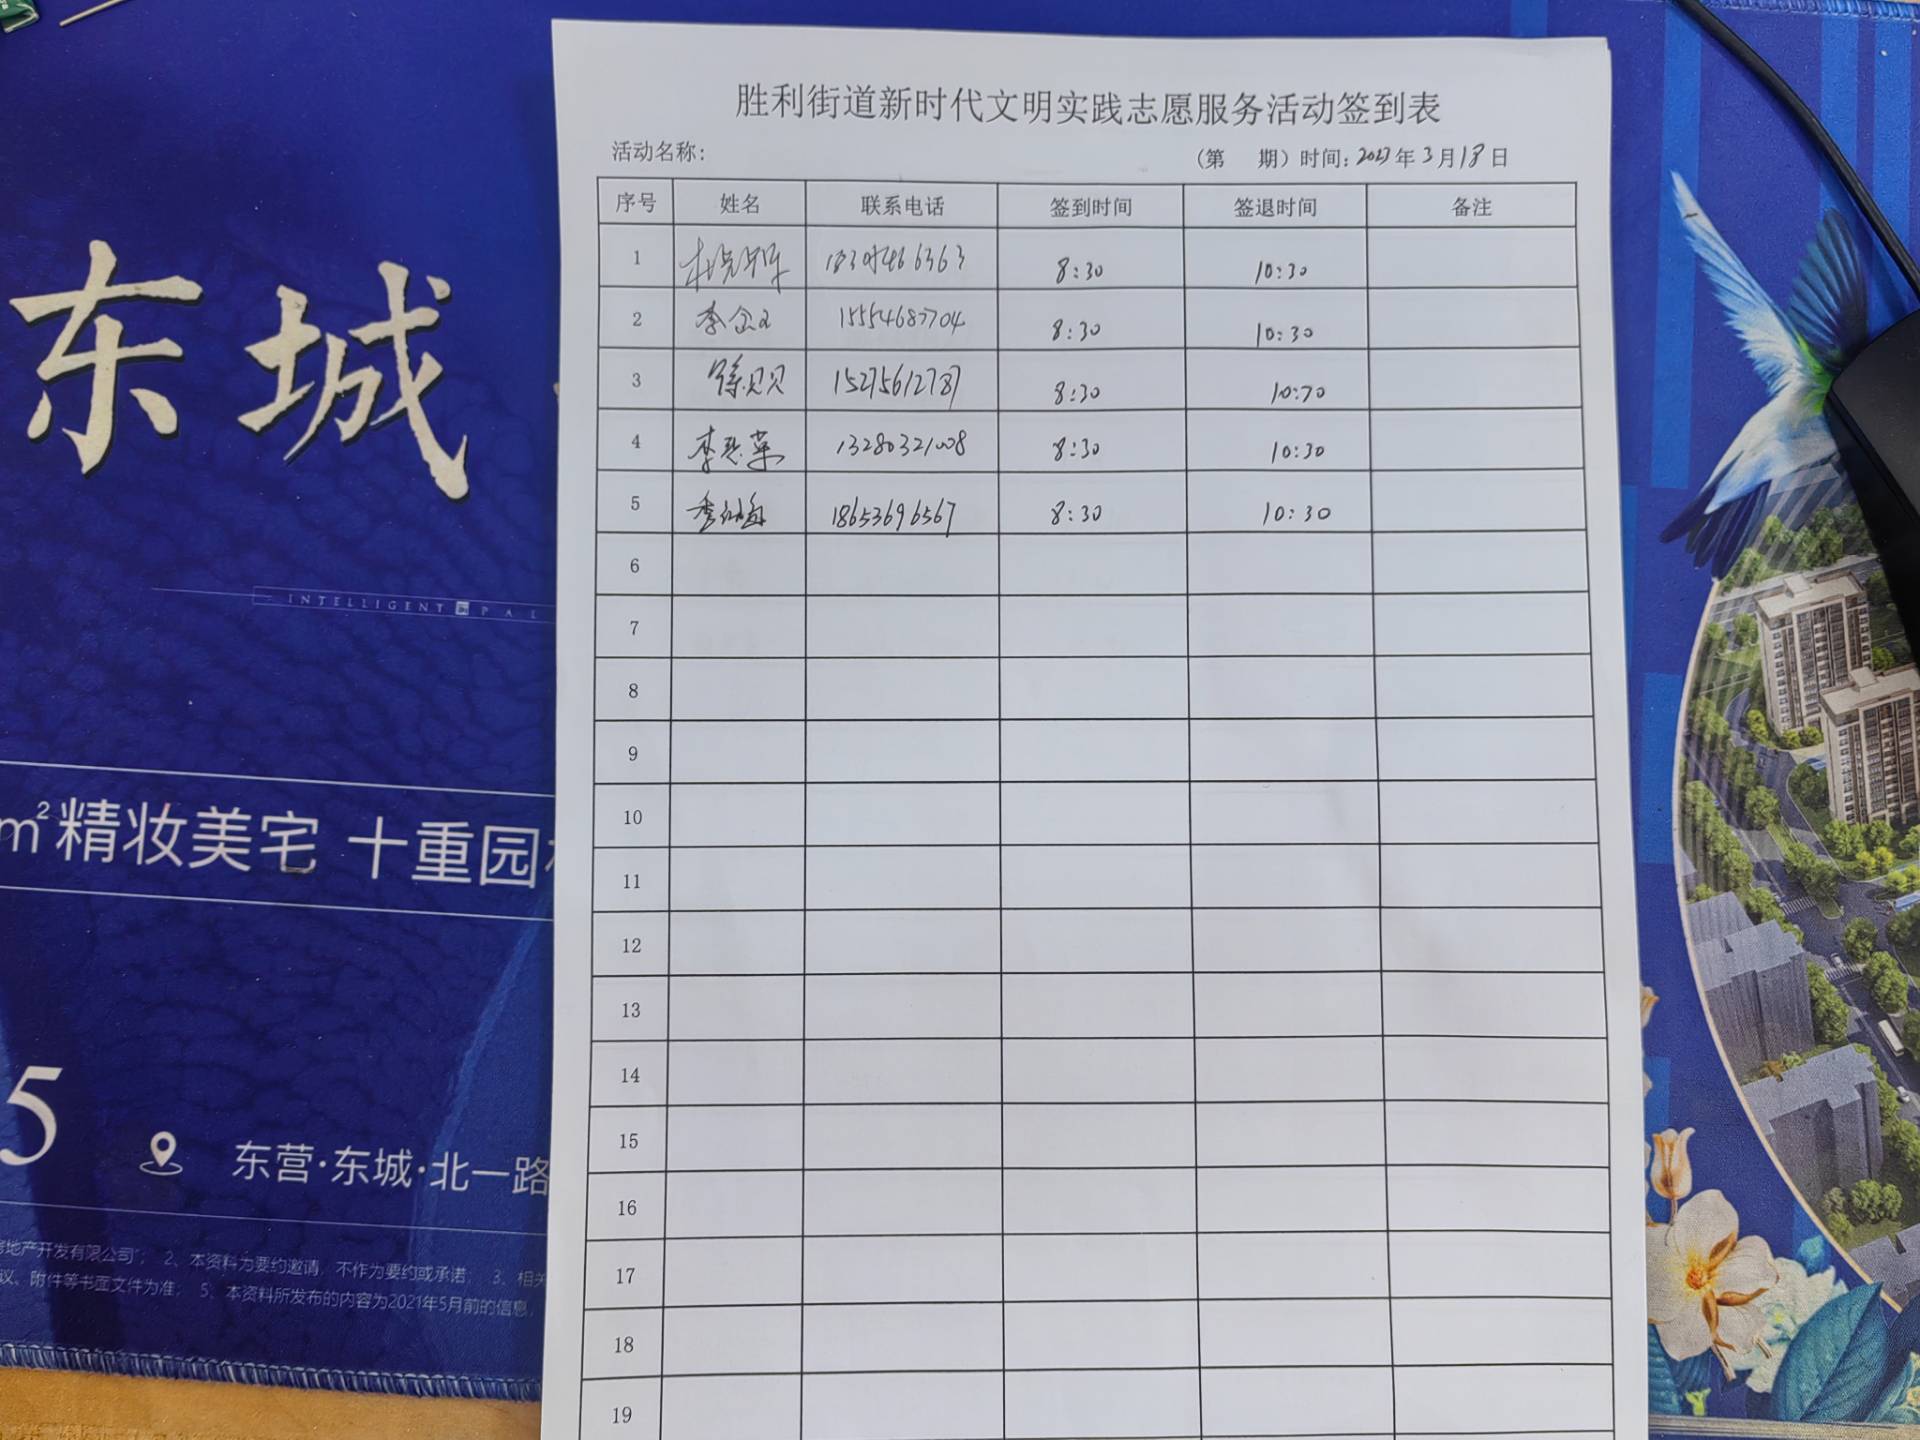 胜利街道新时代文明实践志愿服务活动签到表
活动名称: (第 期) 时间: 2023年3月18日
序号 姓名 联系电话 签到时间 签退时间 备注
1 8:30 10:30
2 15554683704 8:30 10:30
3 贝贝 15275612787 8:30 10:30
4 13280321008 8:30 10:30
5 18653696567 8:30 10:30
6
7
8
9
10
11
12
13
14
15
16
17
18
19
东城
INTELLIGENT PAL
m²精妆美宅 十重园
5
东营·东城·北一路
房地产开发有限公司"; 2、本资料为要约邀请,不作为要约或承诺; 3、相关
议、附件等书面文件为准; 5、本资料所发布的内容为2021年5月前的信息,